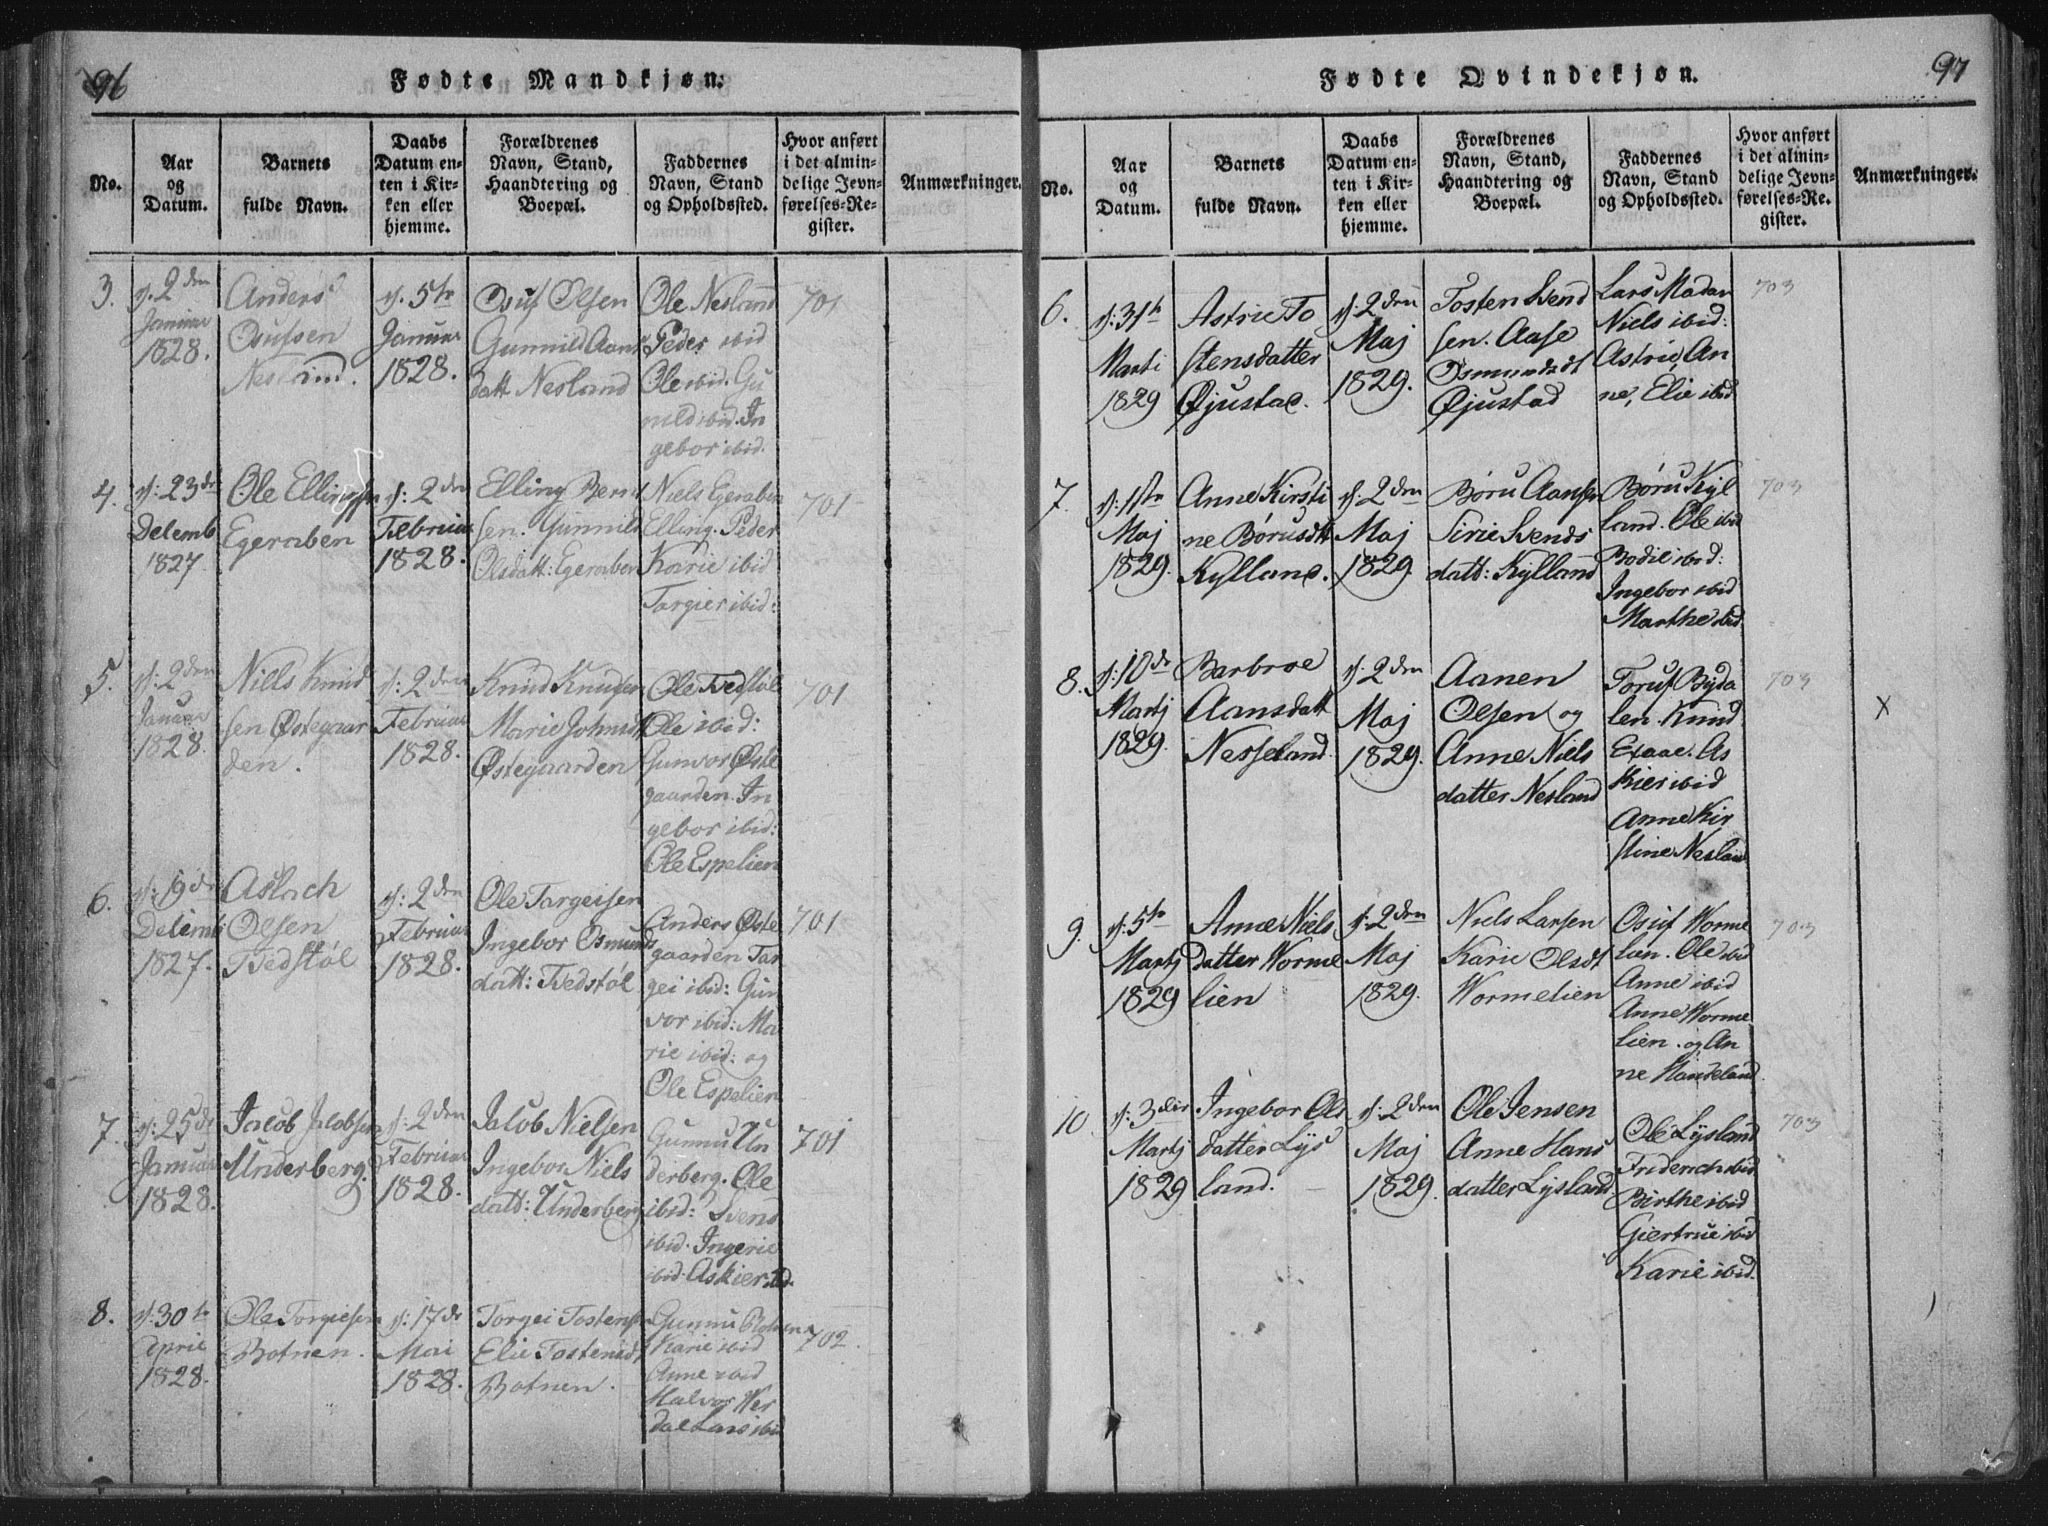 96
Fødte Mandkjøn.
No.
Aar
og
Datum.
Barnets
fulde Navn.
Daabs
Datum en-
ten i Kir-
ken eller
hjemme.
Forældrenes
Navn, Stand,
Haandtering og
Boepæl.
Faddernes
Navn, Stand
og Opholdssted.
Hvor anført
i det almin-
delige Jevn-
førelses-Re-
gister.
Anmærkninger.
3.
d: 2den
Januar
1828.
Anders
Osufsen
Nesland.
d. 5te
Januar
1828.
Osuf Olsen
Gunnild Aans
datt Nesland
Ole Nesland
Peder ibid
Ole ibid. Gu
nild ibid. In
gebor ibid.
701
4.
d: 23de
Decemb
1827.
Ole Ellingsen
Egeraben
d: 2den
Februar
1828.
Elling Bernt
sen. Gunnild
Olsdatt: Egeraben
Niels Egeraben
Elling. Peder
Karie ibid
Targier ibid:
701
5.
d: 2den
Januar
1828.
Niels Knud
sen Østegaar
den.
d: 2den
Februar
1828.
Knud Knudsen
Marie Johnsdt
Østegaarden
Ole Tvedstøl
Ole ibid:
Gunvor Øste
gaarden. In
gebor ibid:
Ole Espelien
701
6.
d: 19de
Decemb
1827.
Aslach
Olsen
Tvedstøl
d: 2den
Februar
1828.
Ole Targeisen
Ingebor Osmunds
datt: Tvedstøl
Anders Øste
gaarden Tar
gei ibid: Gun
vor ibid: Ma
rie ibid: og
Ole Espelien
701
7.
d: 25de
Januar
1828.
Jacob Jacobsen
Underberg.
d: 2den
Februar
1828.
Jacob Nielsen
Ingebor Niels
datt: Underberg
Gunnu Un
derberg. Ole
ibid: Svend
ibid. Ingerie
ibid. Askier ibid.
701
8.
d: 30te
April
1828.
Ole Torgiesen
Botnen.
d: 17de
Mai
1828.
Torgei Tostensen
Elie Tostensdt
Botnen.
Gunnu Botnen
Karie ibid
Anne ibid
Halvor Wer
dal Lars ibid
702.
97
Fødte Qvindekjøn.
No.
Aar
og
Datum.
Barnets
fulde Navn.
Daabs
Datum en-
ten i Kir-
ken eller
hjemme.
Forældrenes
Navn, Stand,
Haandtering og
Boepæl.
Faddernes
Navn, Stand
og Opholdssted.
Hvor anført
i det almin-
delige Jevn-
førelses-Re-
gister.
Anmærkninger.
6.
d: 31te
Marti
1829
Astrie To
stensdatter
Øjustad.
d: 2den
Maj
1829.
Tosten Svend
sen. Aase
Osmundsdt
Øjustad
Lars Madan
Niels ibid:
Astrie, An
ne, Elie ibid
703
7.
d: 1ste
Maj
1829.
Anne Kirsti
ne Børusdtt
Kylland.
d: 2den
Maj
1829
Børu Aansen
Sirie Svends
datt: Kylland
Børu Kyl
land. Ole ibid
Bodil ibid:
Ingebor ibid
Marthe ibid.
703
8.
d: 10de
Martj
1829.
Barbroe
Aansdatt
Nesseland.
d: 2den
Maj
1829.
Aanen
Olsen og
Anne Niels
datter Nesland
Toruf Byda
len. Knud
Exaae. As
kier ibid
Anne Kir
stine Nesland
703
X
9.
d: 5te
Martj
1829
Anne Niels
datter Worme
lien
d: 2den
Maj
1829.
Niels Larsen
Karie Olsdt
Wormelien
Osuf Worme
lien. Ole ibid
Anne ibid
Anne Worme
lien. og An
ne Haudeland
703
10
d: 3die
Martj
1829
Ingebor Ols
datter Lys
land.
d: 2den
Maj
1829.
Ole Jensen
Anne Hans
datter Lysland
Ole Lysland
Friderich ibid
Birthe ibid
Giertrue ibid
Karie ibid.
703